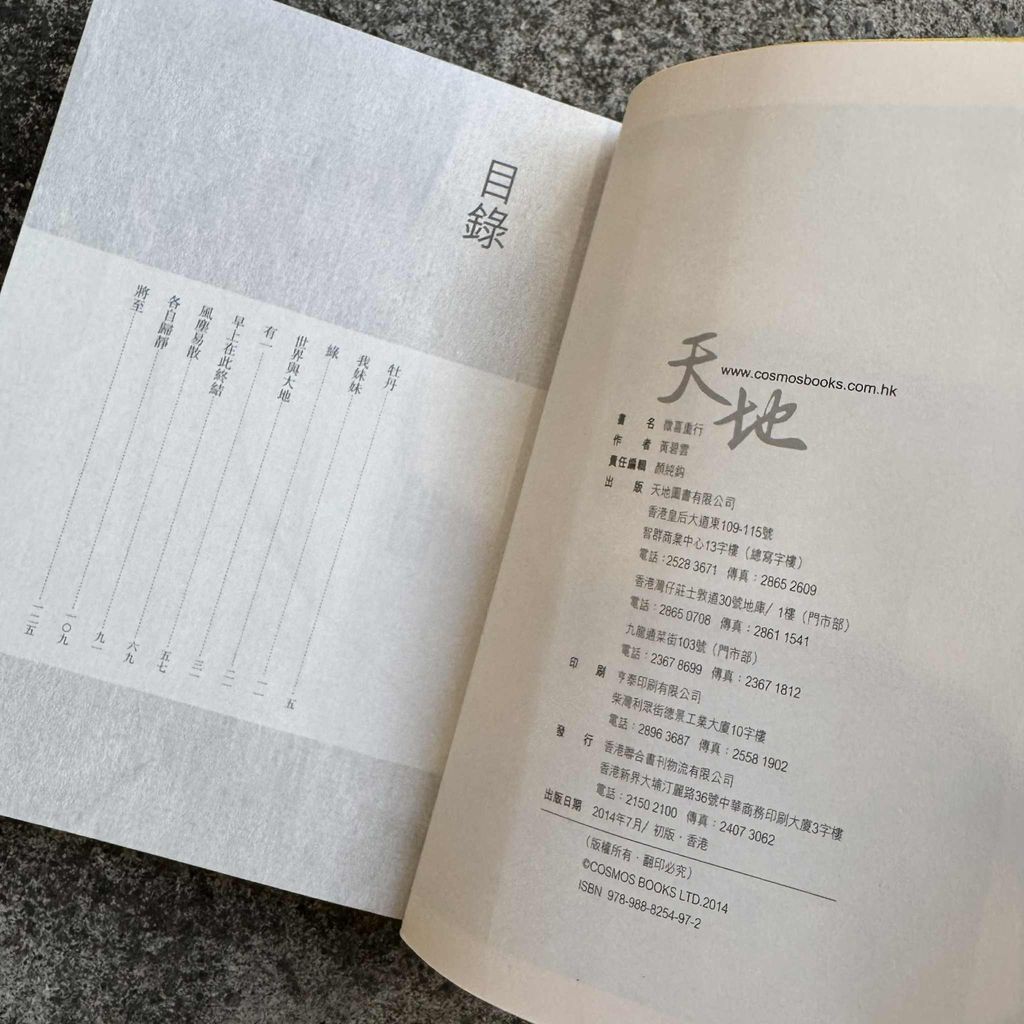 目錄
牡丹 五
我妹妹 一一
緣 二一
世界與大地 三一
有一 五七
早上在此終結 六九
風塵易散 九一
各自歸靜 一〇九
將至 一二五
天地
www.cosmosbooks.com.hk
書 名 微喜重行
作 者 黃碧雲
責任編輯 顏純鈎
出 版 天地圖書有限公司
香港皇后大道東109-115號
智群商業中心13字樓（總寫字樓）
電話：2528 3671 傳真：2865 2609
香港灣仔莊士敦道30號地庫/ 1樓（門市部）
電話：2865 0708 傳真：2861 1541
九龍通菜街103號（門市部）
電話：2367 8699 傳真：2367 1812
印 刷 亨泰印刷有限公司
柴灣利眾街德景工業大廈10字樓
電話：2896 3687 傳真：2558 1902
發 行 香港聯合書刊物流有限公司
香港新界大埔汀麗路36號中華商務印刷大廈3字樓
電話：2150 2100 傳真：2407 3062
出版日期 2014年7月/ 初版·香港
（版權所有·翻印必究）
©COSMOS BOOKS LTD.2014
ISBN 978-988-8254-97-2